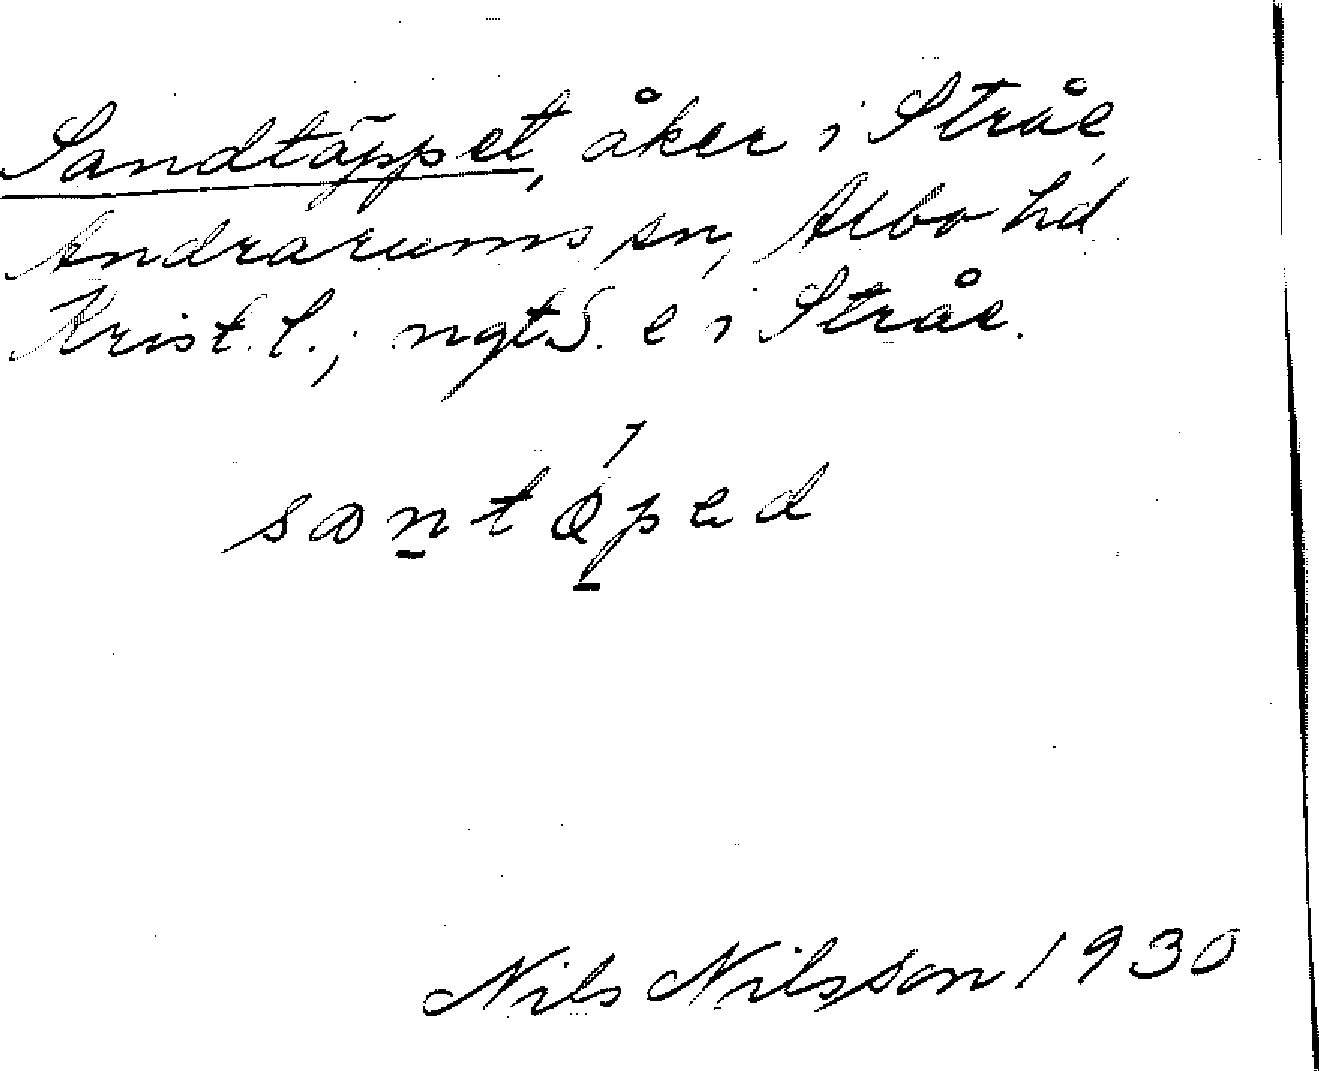 Sandtäppet, åker i Stråe,
Andrarums sn, Albo hd
Krist. l.; ngt S. e i Stråe.
santǽped
Nils Nilsson 1930